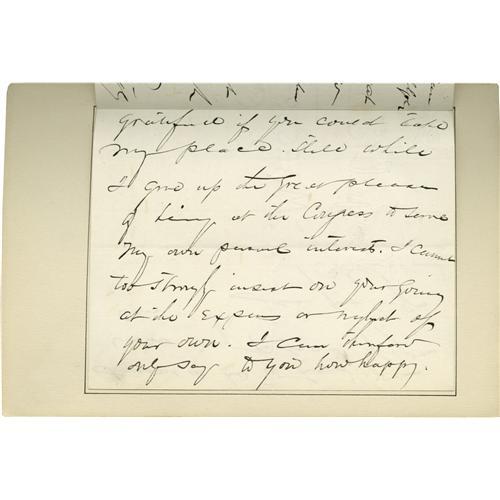 grateful if you could take
my place. Still while
I give up the great pleasure
of being at the Congress to serve
my own personal interest. I cannot
too strongly insist on your going
at the expense or neglect of
your own. I can therefore
only say to you how happy.